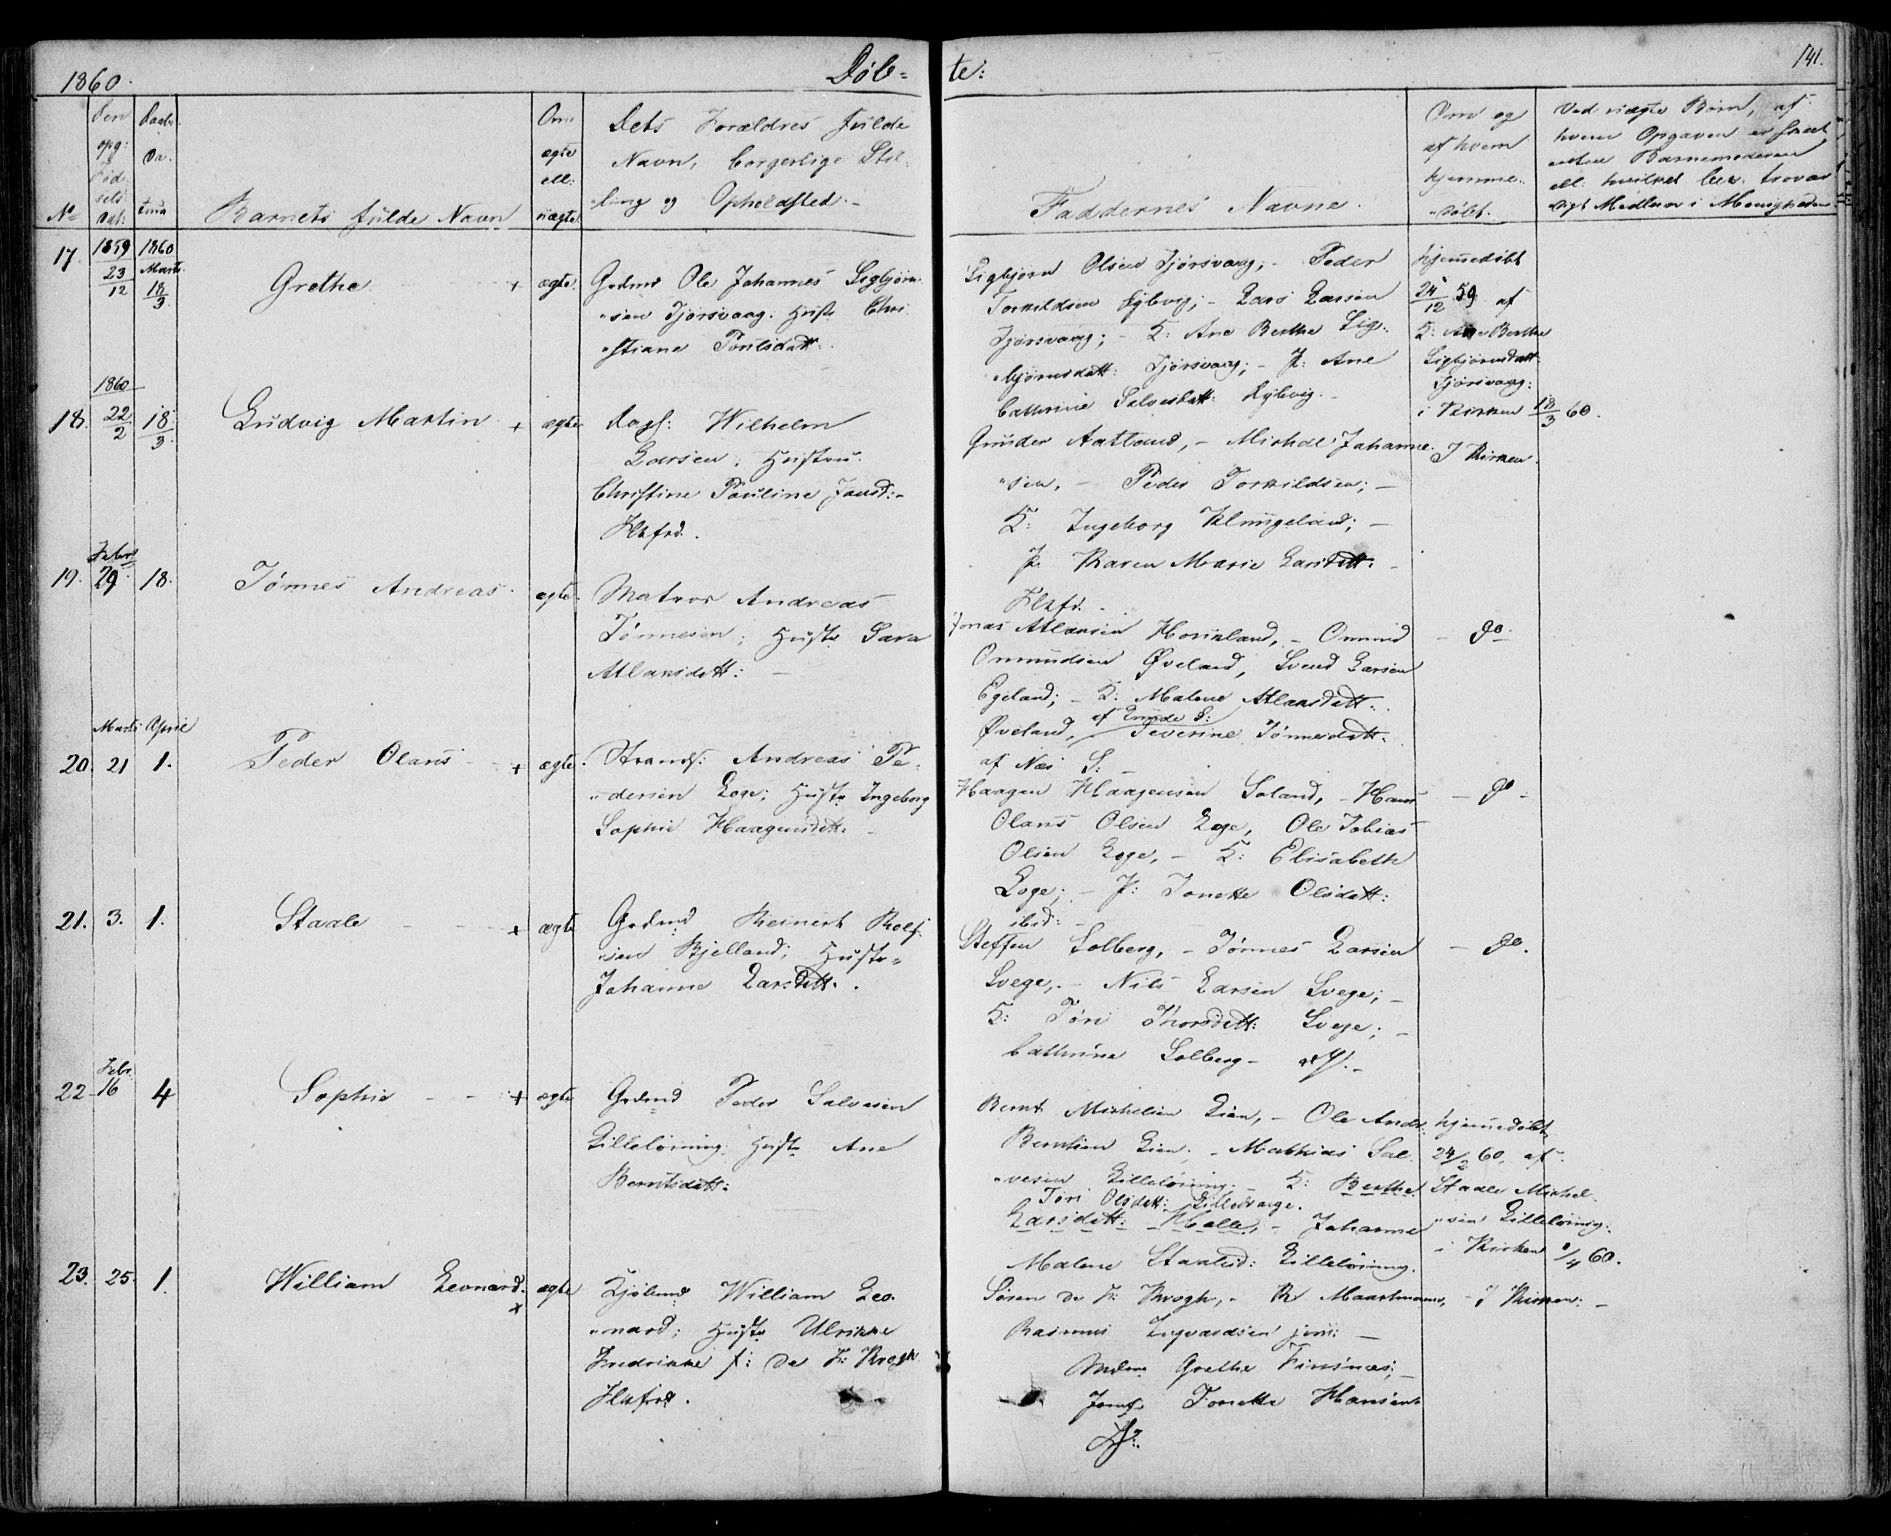 1860. Døb= te: 141.
No
Den opg: Fødsels Dat:
Daabs Datum
Barnets fulde Navn
Om ægte ell: uægte
Dets Forældres fulde
Navn, borgerlige Stil-
ling og Opholdsted.-
Faddernes Navne.
Om og
af hvem
hjemme-
døbt.
Ved uægte Børn, af
hvem Opgaven er skeet
enten Barnemoderen
ell: hvilket
Medlem i Menigheden
17. 1859 23/12 1860 Marts 18/3 Grethe + ægte
Grdmd Ole Johannes Sigbjørn-
sen Tjørsvaag. Hustr Chri-
stiane Poulsdatt:
Sigbjørn Olsen Tjørsvaag; - Peder
Torkildsen Løvig; - Lars Larsen
Tjørsvaag; - K: Ane Berthe Sig-
bjørnsdatt: Tjørsvaag; - P: Ane
Cathrine Salvesdatt:
hjemmedøbt
24/12 59 af
K: Ane Berthe
Sigbjørnsdatt:
Tjørsvaag:
i Kirken 18/3 60.
18. 1860 22/2 18/3. Ludvig Martin + ægte
Dagl: Wilhelm
Larsen, Hustru
Christine Pauline Jansd:-
Flkfrd.
Gunder Aatland, - Michael Johanne-
sen, - Peder Torkildsen; -
K: Ingeborg Klungeland; -
P. Karen Marie Larsdatt. -
Flkfr. -
I Kirken.
19. Febr 29. 18. Tønnes Andreas. ægte.
Matros Andreas
Tønnesen; Hustr Sara
Atlaksdatt: -
Jonas Atlaksen Houkland, - Ommund
Ommundsen Øveland, Svend Larsen
Egeland; - K: Malene Atlaksdatt:
Øveland, af Lunde S: Severine Tønnesdatt.
af Næs S: -
- do -
20. Marts 21 April 1. Peder Olaus + ægte.
Strands: Andreas Pe-
dersen Loge; Hustr Ingeborg
Sophie Haagensdatt: -
Haagen Haagensen Soland, - Hans
Olaus Olsen Loge, Ole Tobias
Olsen Loge, - K: Elisabeth
Loge; - P: Tonette Olsdatt:
ibid: -
- do -
21. 3. 1. Staale + ægte
Grdmd Reinert Rolf-
sen Bjelland; Hustr
Johanne Larsdatt. .
Steffen Solberg, - Tønnes Larsen
Svege, - Nils Larsen Svege; -
K: Tøri Thorsdatt: Svege; -
Cathrine Solberg -
- do.
22 Febr. 16 4 Sophie - - + ægte
Grdmd Peder Salvesen
Lilleløining, Hustr Ane
Berntsdatt:
Bernt Michelsen Lien, - Ole Andr:
Berntsen Lien, - Mathias Sal-
vesen Lilleløining. - K: Berthe
Tøri Olsdatt:
Larsdatt: Halle, - Johanne
Malene Staalesd: Lilleløining.
hjemmedøbt
24/2 60, af
Staale Michel-
sen Lilleløining.
i Kirken 1/4 60.
23. 25. 1. William Leonard. + ægte
William Leo-
nard; Hustr Ulrikke
Fredrikke f: de F: Krogh
Flkfrd.
Søren de F: Krogh, - R Maartmann, - I Kirken: -
Rasmus Ingvardsen jun: -
Mdm Grethe Finsnæs; -
Jomf: Tonette Hansen